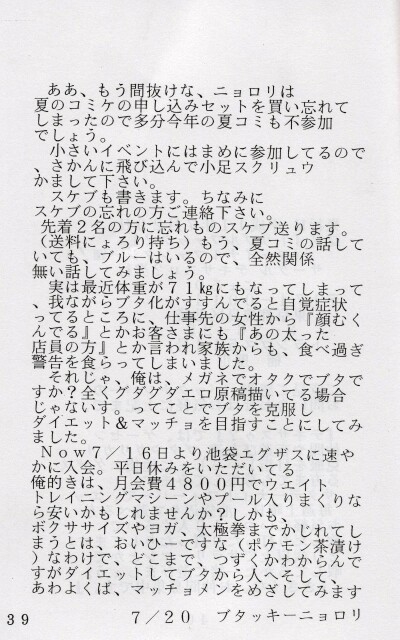 ああ、もう間抜けな、ニョロリは
夏のコミケの申し込みセットを買い忘れて
しまったので多分今年の夏コミも不参加
でしょう。
小さいイベントにはまめに参加してるので
、さかんに飛び込んで小足スクリュウ
かまして下さい。
スケブも書きます。ちなみに
スケブの忘れの方ご連絡下さい。
先着２名の方に忘れものスケブ送ります。
（送料にょろり持ち）もう、夏コミの話して
いても、ブルーはいるので、全然関係
無い話してみましょう。
実は最近体重が７１㎏にもなってしまって
、我ながらブタ化がすすんでると自覚症状
ってるところに、仕事先の女性から『顔むく
んでる』とかお客さまにも『あの太った
店員の方』とか言われ家族からも、食べ過ぎ
警告を食らってしまいました。
それじゃ、俺は、メガネでオタクでブタで
すか？全くグダグダエロ原稿描いてる場合
じゃないす。ってことでブタを克服し
ダイエット＆マッチョを目指すことにしてみ
ました。
Ｎｏｗ７／１６日より池袋エグザスに速や
かに入会。平日休みをいただいてる
俺的きは、月会費４８００円でウエイト
トレイニングマシーンやプール入りまくりな
ら安いかもしれませんか？しかも、
ボクササイズやヨガ、太極拳までかじれてし
まうとは、おいひーですな（ポケモン茶漬け
）なわけで、どこまで、つずくかわからんで
すがダイエットしてブタから人へそして、
あわよくば、マッチョメンをめざしてみます
７／２０　ブタッキーニョロリ
３９